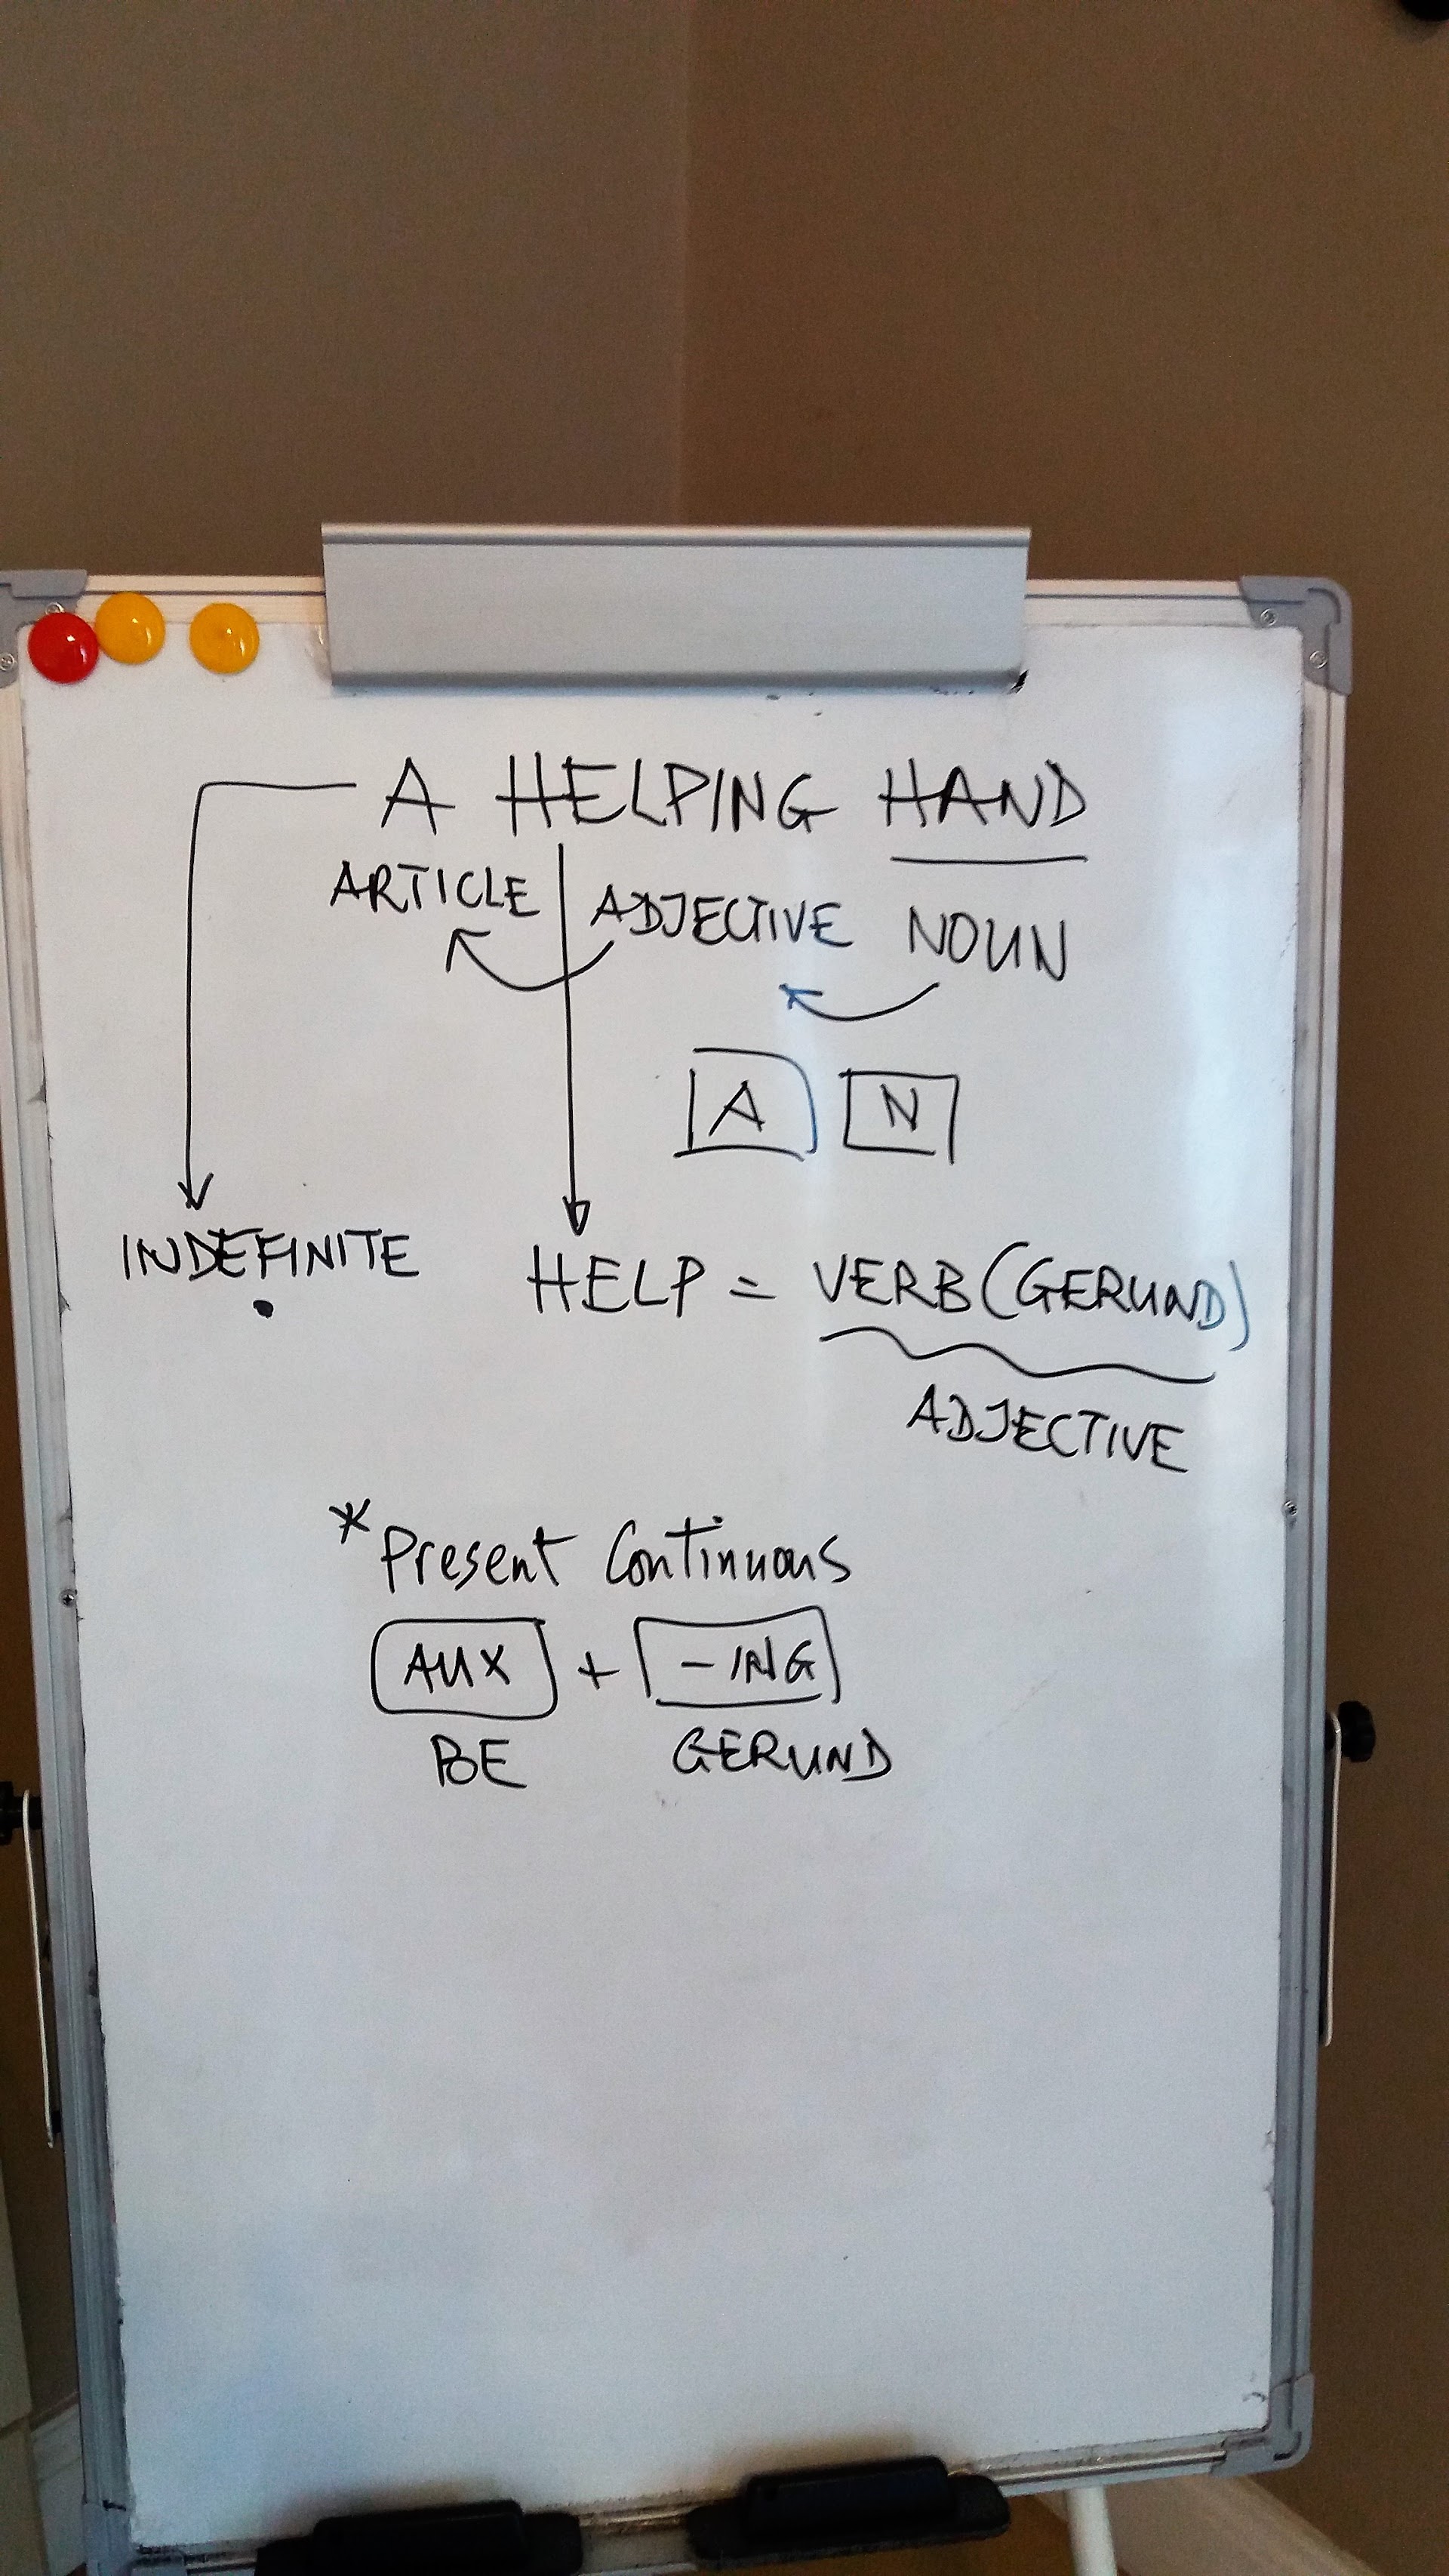 A HELPING HAND
ARTICLE ADJECTIVE NOUN
A N
INDEFINITE
HELP = VERB (GERUND)
ADJECTIVE
* Present Continuous
AUX + -ING
BE GERUND